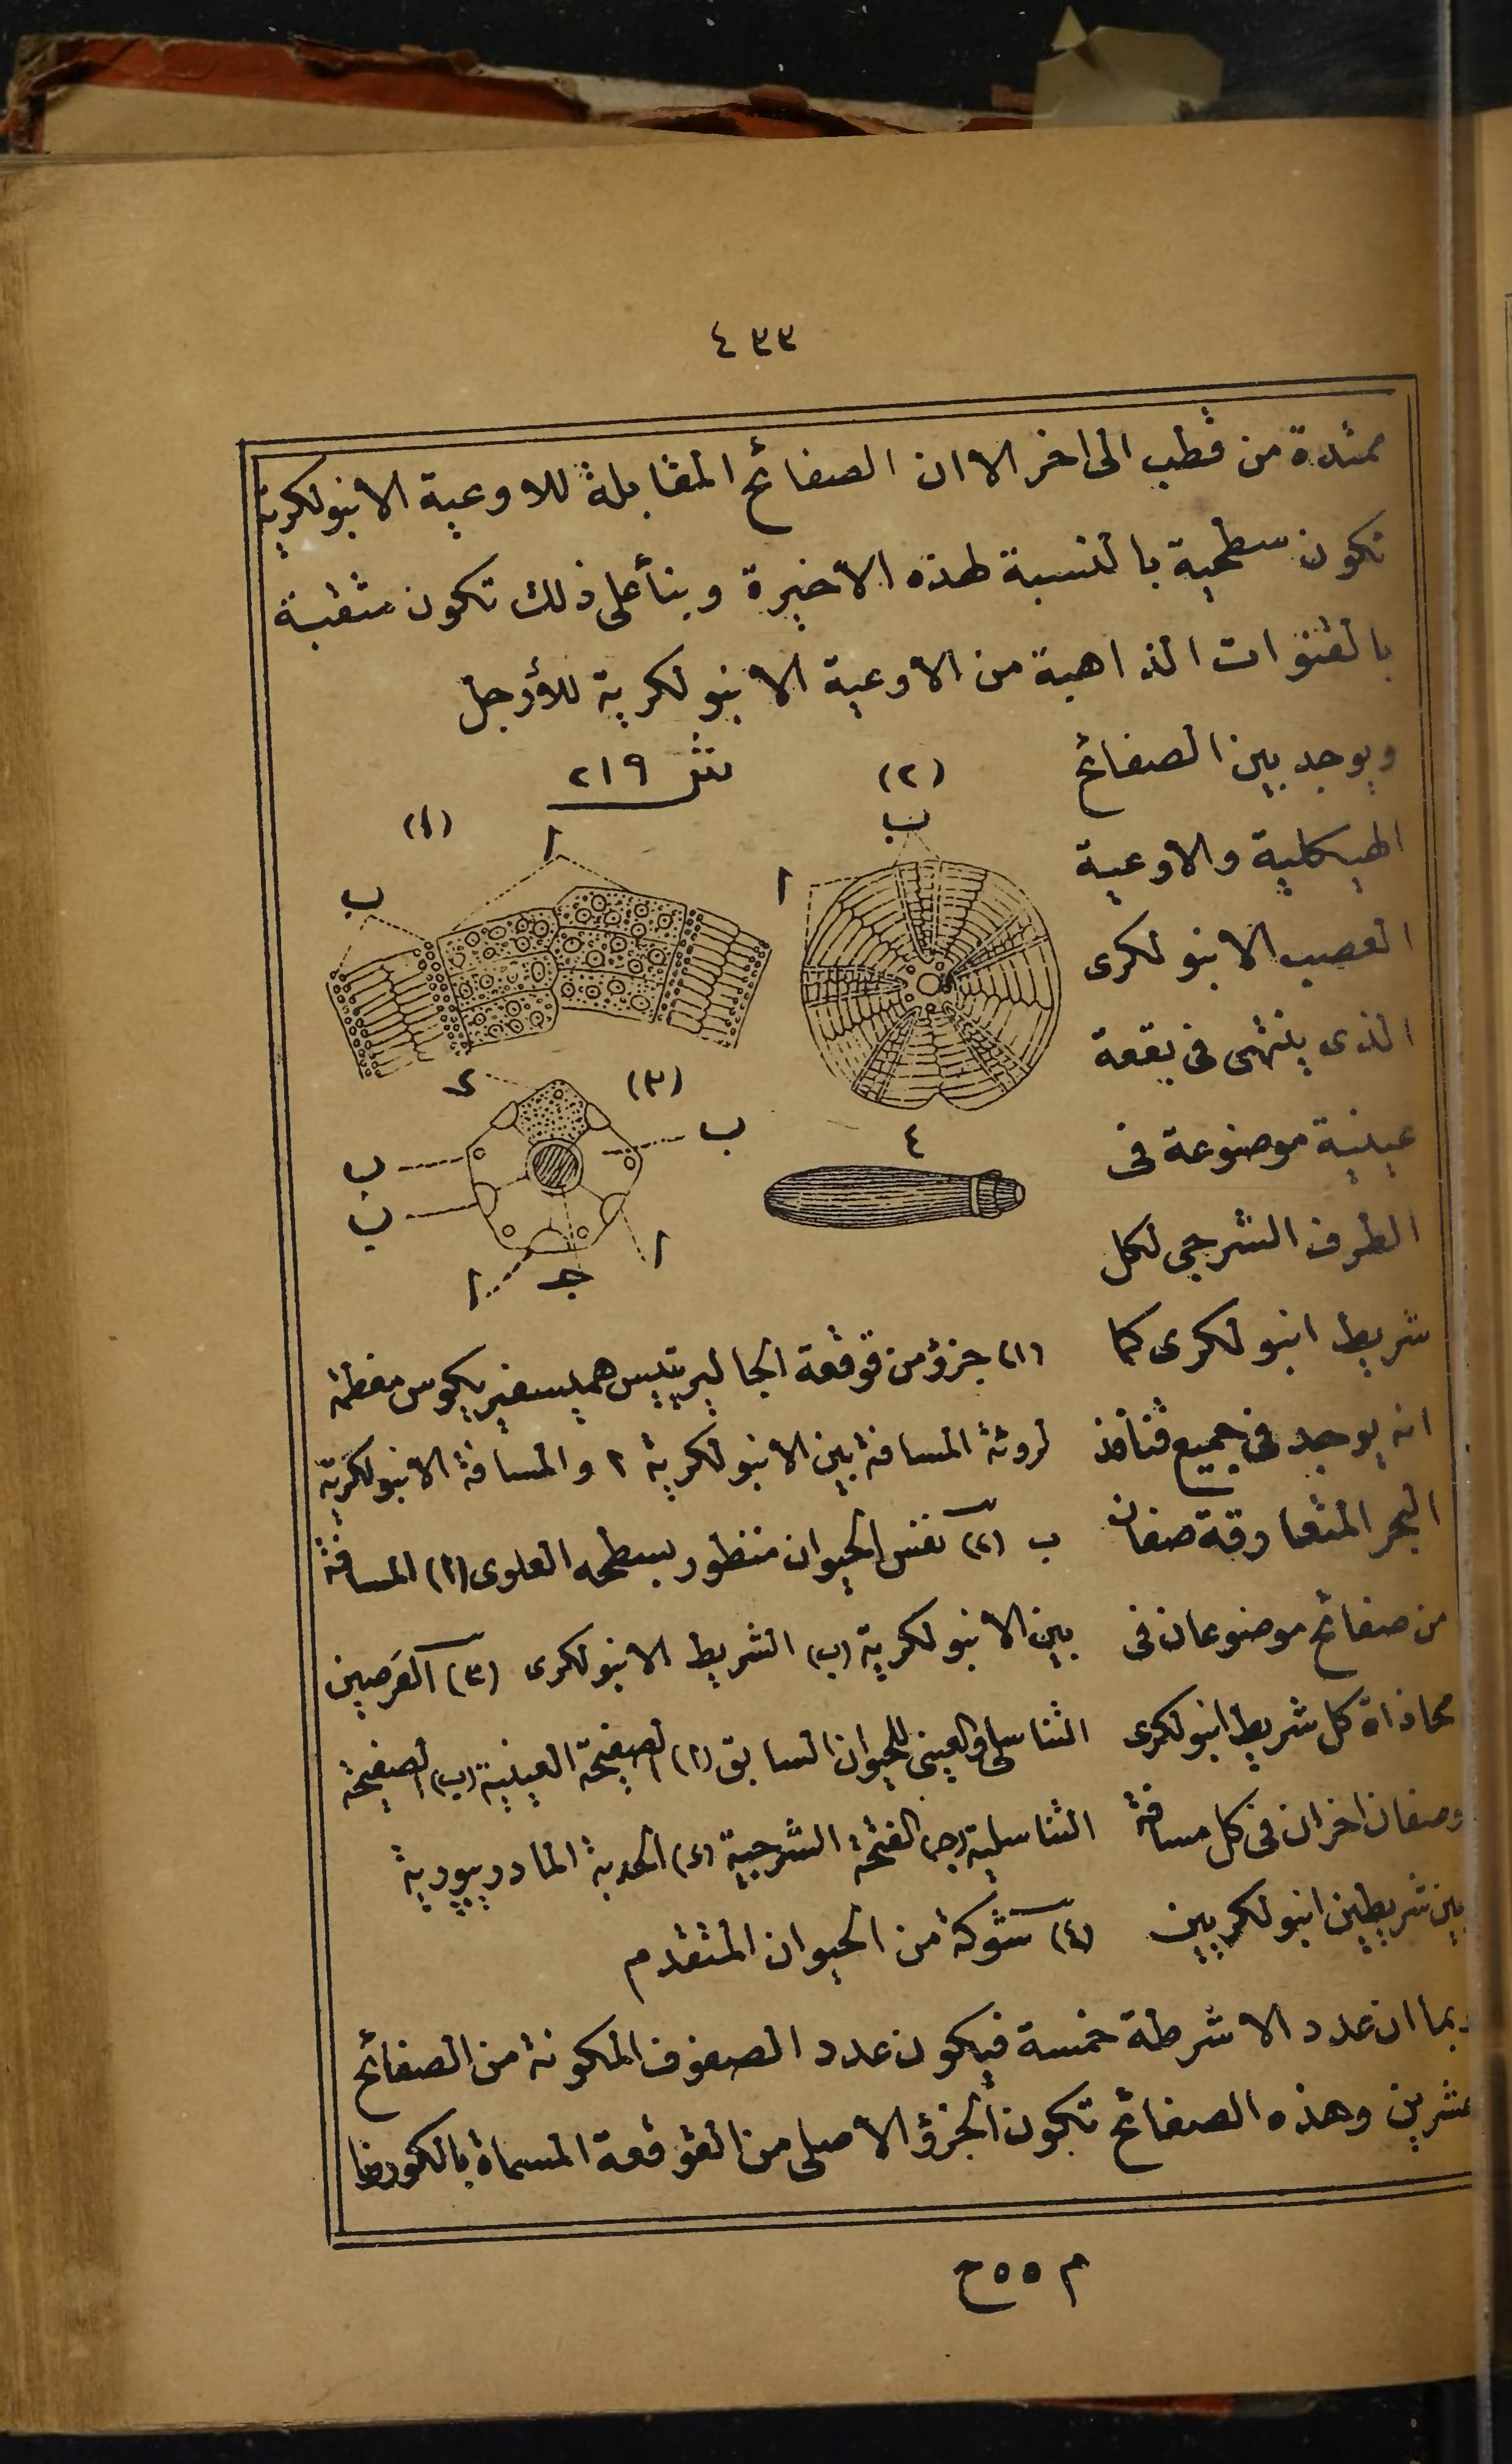 ٤٣٣
ممتدة من قطب الى اخر الا ان الصفائح المقابلة للاوعية الانبولكرية
تكون سطحية بالنسبة لهذه الاخيرة وبنأ على ذلك تكون مثقبة
بالقنوات الذاهبة من الاوعية الانبولكرية للأرجل
ويوجد بين الصفائح
الهيكلية والاوعية
العصب الانبولكرى
الذى ينتهى فى بقعة
عينية موضوعة فى
الطرف الشرجى لكل
شريط انبولكرى كما
انه يوجد فى جميع قنافذ
البحر المتعارقة صفان
من صفائح موضوعان فى
محاذاة كل شريط انبولكرى
وصفان اخران فى كل مسافة
بين شريطين انبولكريين
شكل ٢١٩
(١)
ا
ب
(٢)
ب
ا
(٣)
د
ب
ب
ب
ا
ج
ا
٤
(١) جزؤ من قوقعة الجاليريتيس هميسفيريكوس مغطية
لروئة المسافة بين الانبولكرية ا والمسافة الانبولكرية
ب (٢) نفس الحيوان منظور بسطحه العلوى (ا) المسافة
بين الانبولكرية (ب) الشريط الانبولكرى (٣) القرصين
التناسلى والعينى للحيوان السابق (ا) الصفيحة العينية (ب) الصفيحة
التناسلية (ج) الفتحة الشرجية (د) الحدبة المادريبورية
(٤) شوكة من الحيوان المتقدم
وبما ان عدد الاشرطة خمسة فيكون عدد الصفوف المكونة من الصفائح
عشرين وهذه الصفائح تكون الجزؤ الاصلى من القوقعة المسماة بالكورونا
م ٥٥ ح